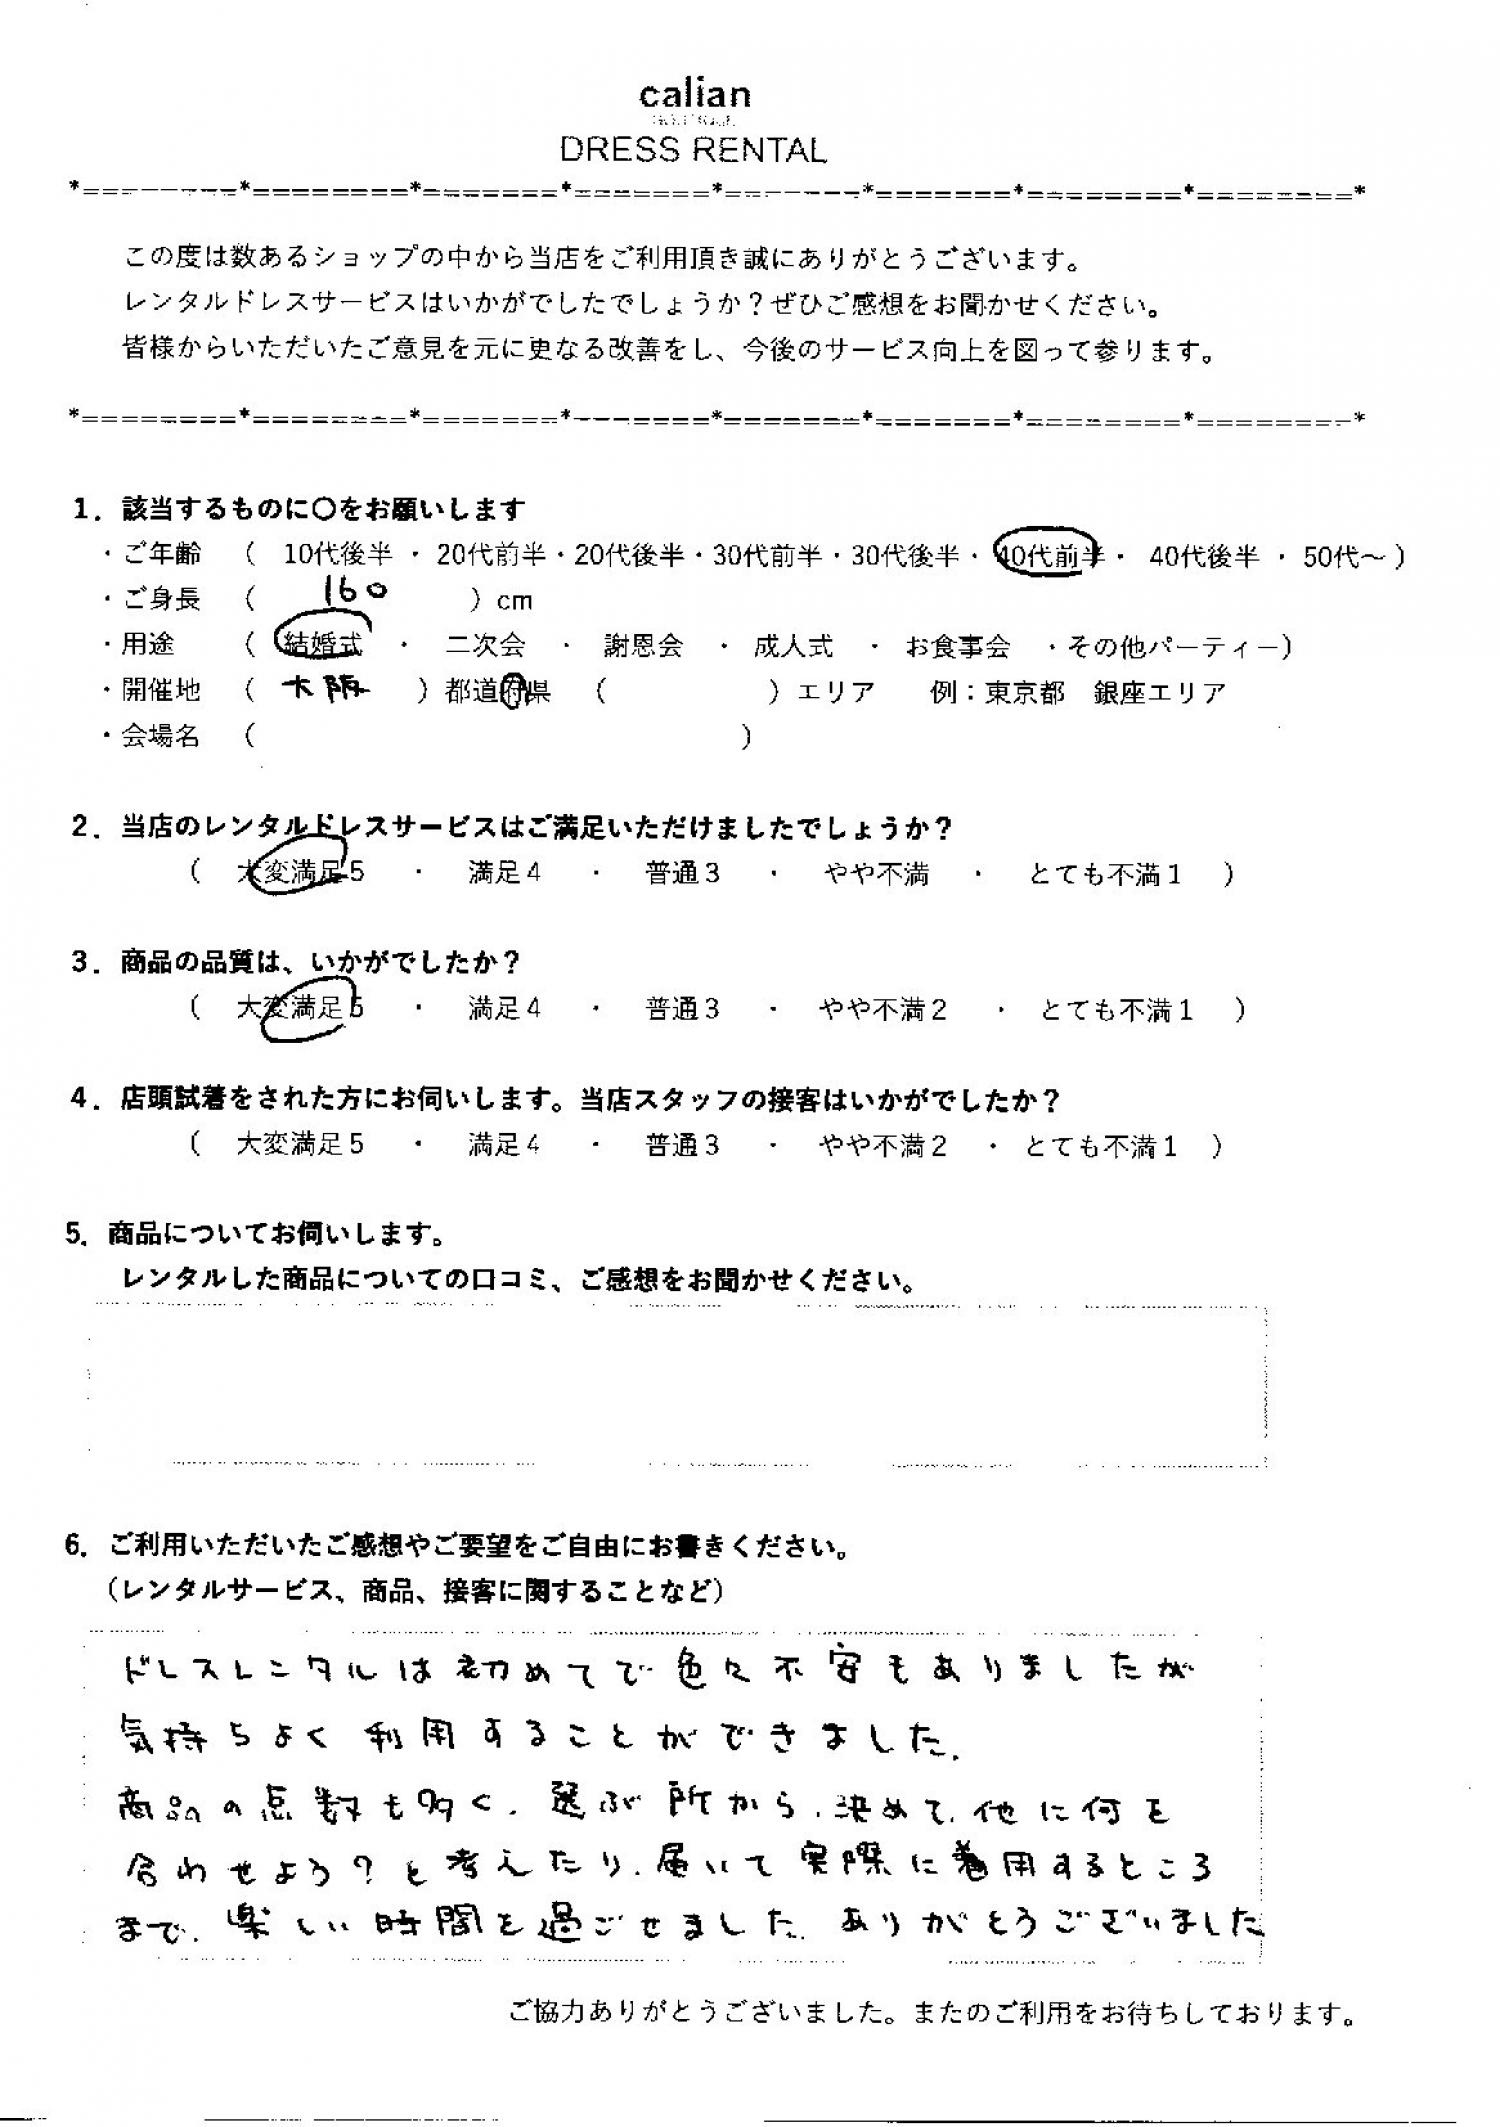 calian
DRESS RENTAL
*=========*=========*========*========*========*========*=========*=========*
この度は数あるショップの中から当店をご利用頂き誠にありがとうございます。
レンタルドレスサービスはいかがでしたでしょうか？ぜひご感想をお聞かせください。
皆様からいただいたご意見を元に更なる改善をし、今後のサービス向上を図って参ります。
*=========*=========*========*========*========*========*=========*=========*
1．該当するものに〇をお願いします
・ご年齢 （ 10代後半 ・ 20代前半・20代後半・30代前半・30代後半・ 40代前半・ 40代後半 ・ 50代～ ）
・ご身長 （ 160 ）cm
・用途 （ 結婚式 ・ 二次会 ・ 謝恩会 ・ 成人式 ・ お食事会 ・その他パーティー）
・開催地 （ 大阪 ）都道府県 （ ）エリア 例：東京都 銀座エリア
・会場名 （ ）
2．当店のレンタルドレスサービスはご満足いただけましたでしょうか？
（ 大変満足5 ・ 満足4 ・ 普通3 ・ やや不満 ・ とても不満1 ）
3．商品の品質は、いかがでしたか？
（ 大変満足5 ・ 満足4 ・ 普通3 ・ やや不満2 ・ とても不満1 ）
4．店頭試着をされた方にお伺いします。当店スタッフの接客はいかがでしたか？
（ 大変満足5 ・ 満足4 ・ 普通3 ・ やや不満2 ・ とても不満1 ）
5．商品についてお伺いします。
レンタルした商品についての口コミ、ご感想をお聞かせください。
6．ご利用いただいたご感想やご要望をご自由にお書きください。
（レンタルサービス、商品、接客に関することなど）
ドレスレンタルは初めてで色々不安もありましたが
気持ちよく利用することができました.
商品の点数も多く、選ぶ所から、決めて、他に何を
合わせよう？と考えたり、届いて実際に着用するところ
まで、楽しい時間を過ごせました。ありがとうございました
ご協力ありがとうございました。またのご利用をお待ちしております。